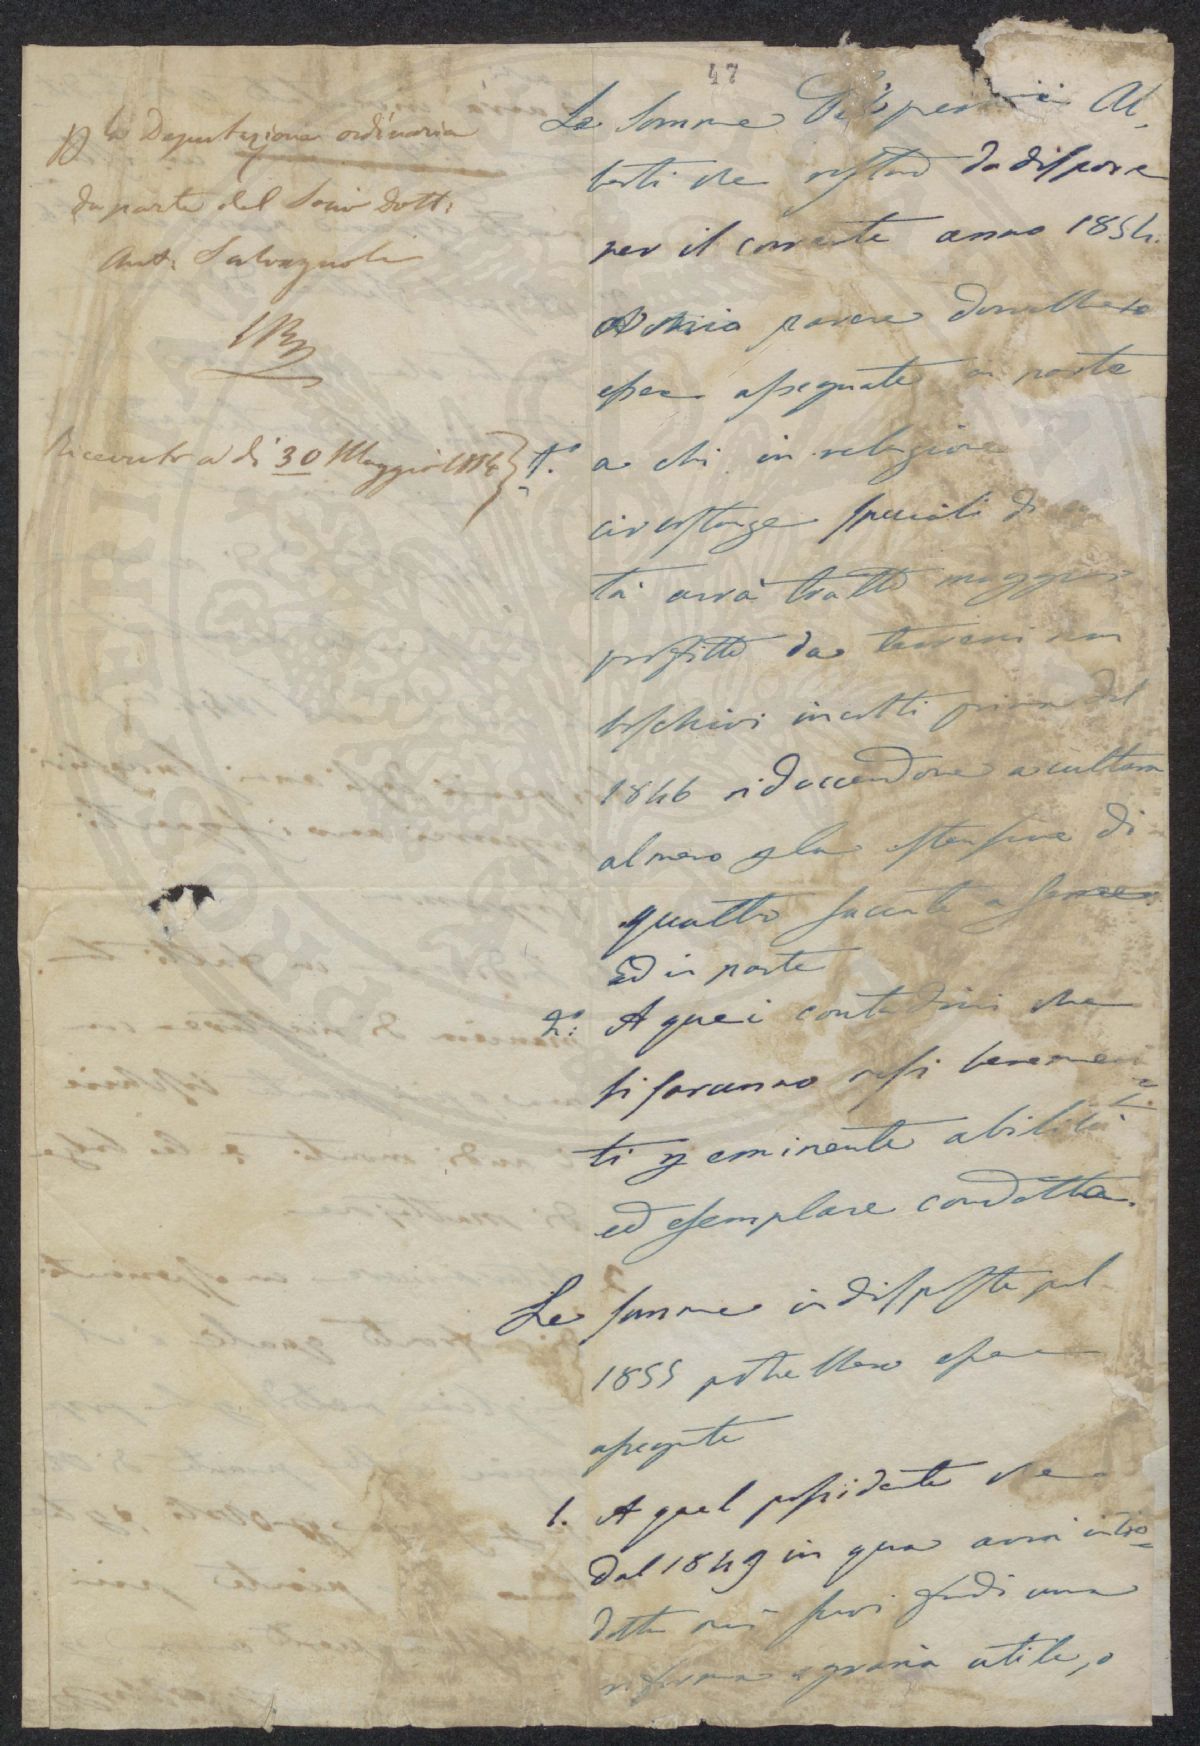 47
p la Deputazione ordinaria
da parte del Socio Dott:
Ant. Salvagnoli
Ricevuto a dì 30 Maggio 1854
Le somme Al-
berti che restano da disporre
per il corrente anno 1854.
A mio parere dovrebbero
essere assegnate in parte
1.° a chi in relazione
circostanze speciali di
tà avrà tratto maggior
profitto da terreni non
boschivi incolti prima del
1846 riducendone a cultura
almeno p la estensione di
quattro saccate a seme
Ed in parte
2.° A quei contadini che
si saranno resi beneme-
ti p eminente abilità
ed esemplare condotta.
Le somme indisposte pel
1855 potrebbero essere
assegnate
1. A quel possidente che
dal 1849 in qua avrà intro-
dotta nei suoi fondi una
riforma agraria utile, o